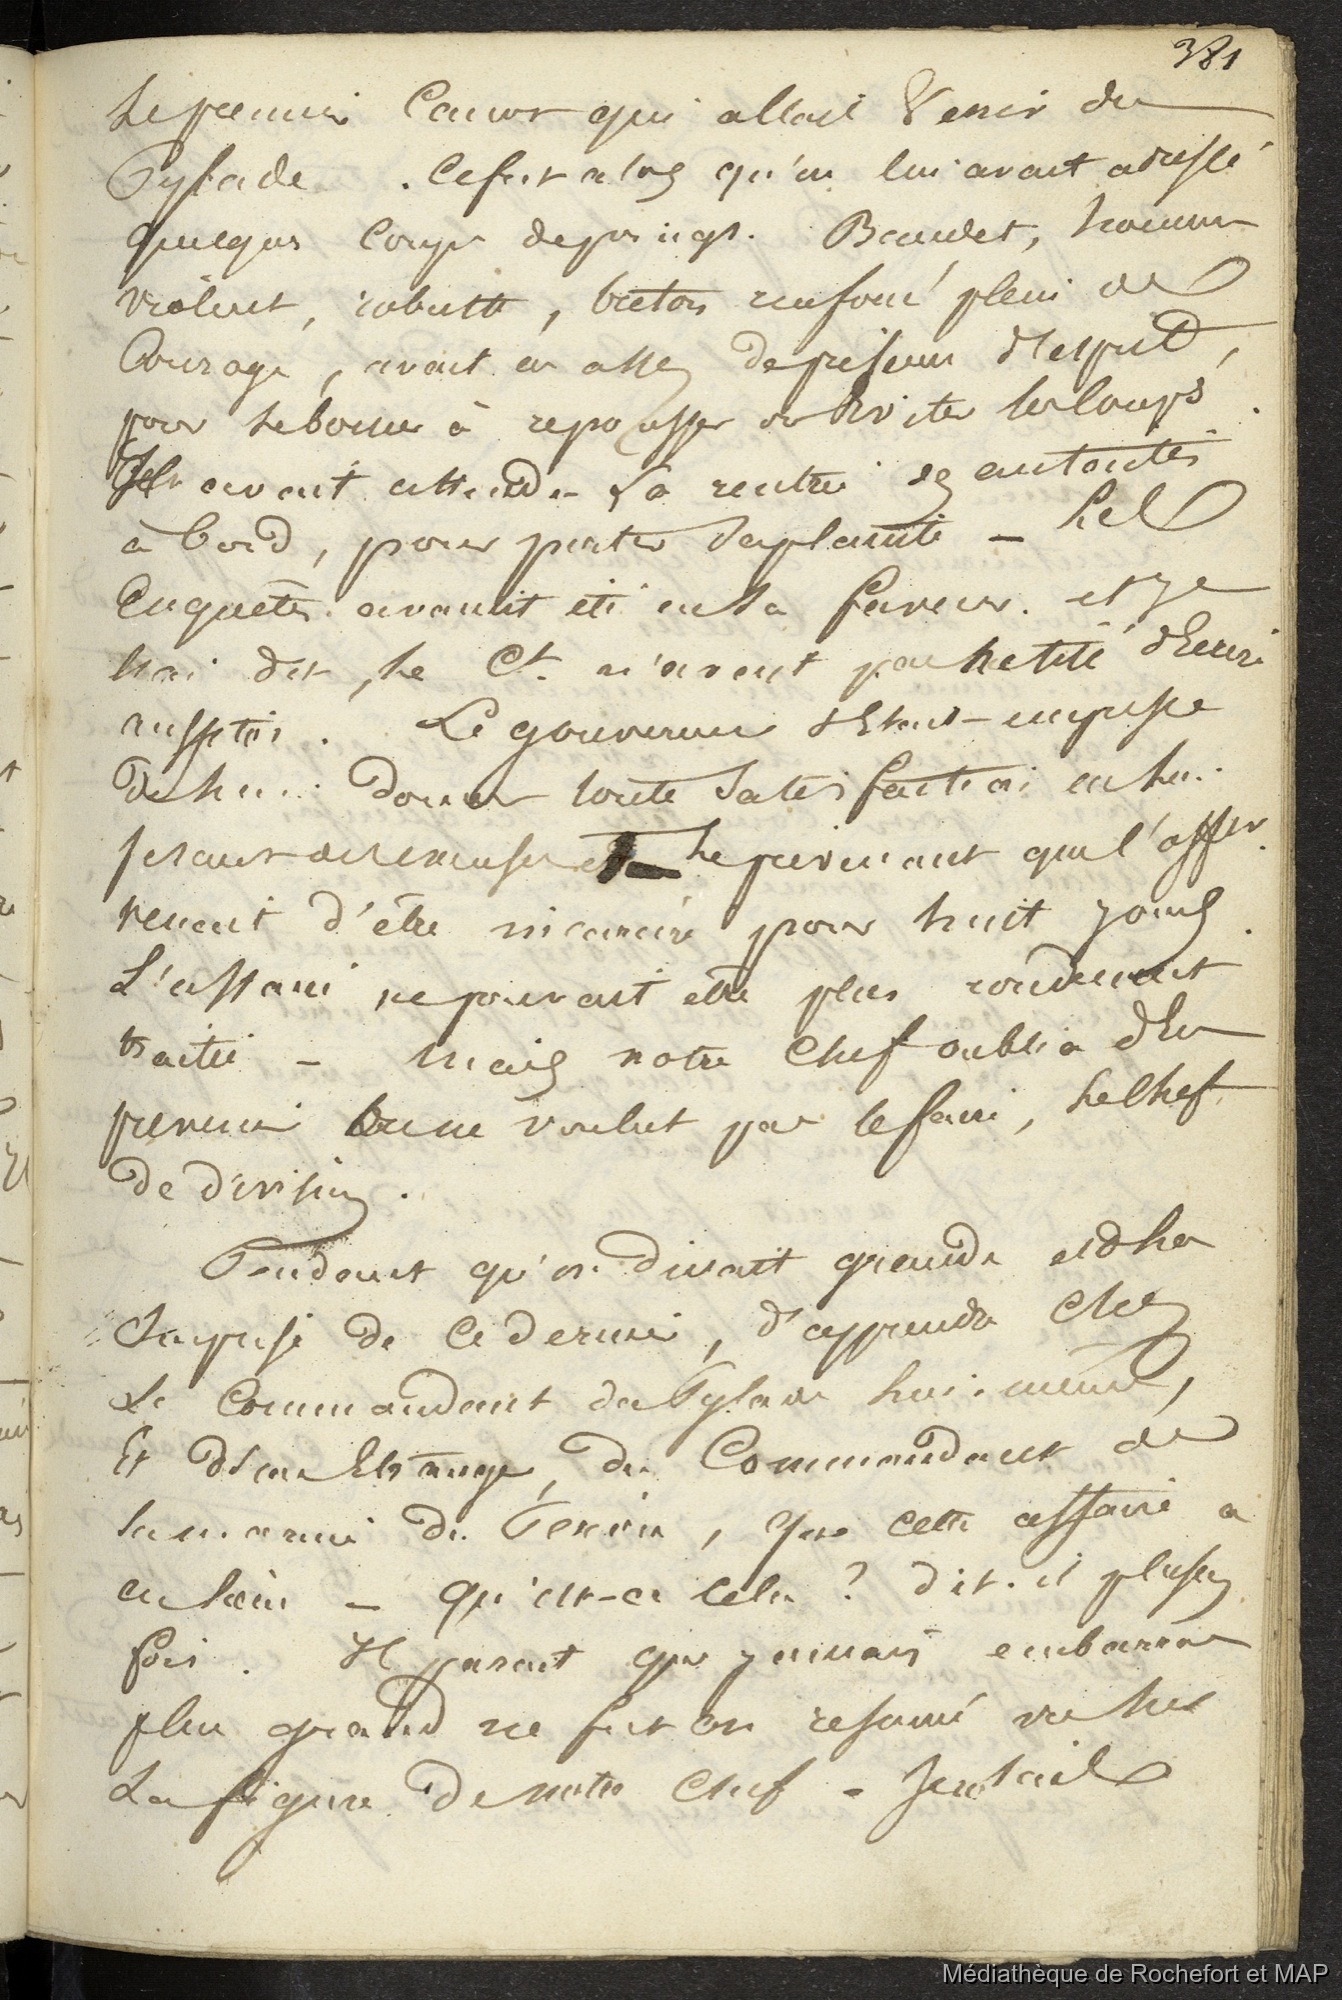 381
le premier canot qui allait venir du
Pylade. Ce fut alors qu'on lui avait adressé
quelques coups de poings. Baudet, homme
violent, robuste, breton renforcé plein de
Courage, avait eu assez de présence d'esprit,
pour se borner à repousser ou éviter les coups.
Il avait attendu la rentrée des autorités
à bord, pour porter sa plainte - Les
Enquêtes avaient été en sa faveur. et je
l'ai dit, le Ct. n'avait pas hésité d'écrire
aussitôt. Le gouverneur s'était empressé
de lui donner toute satisfaction en lui
faisant des excuses et le prévenant que l'offer.
venait d'être incarcéré pour huit jours.
L'affaire ne pouvait être plus rondement
traitée - Mais notre chef oublia d'en
prévenir ou ne voulut pas le faire, le chef
de division.
Pendant qu'on dînait grande et
surprise de ce dernier, d'apprendre chez
le Commandant du Pylade lui-même,
Et du Commandant de
la marine du Perrin, que cette affaire a
eu lieu - qu'est-ce cela ? dit-il plusieurs
fois. Il parait que jamais embarras
plus grand ne fut on résumé vu sur
La figure de notre chef -